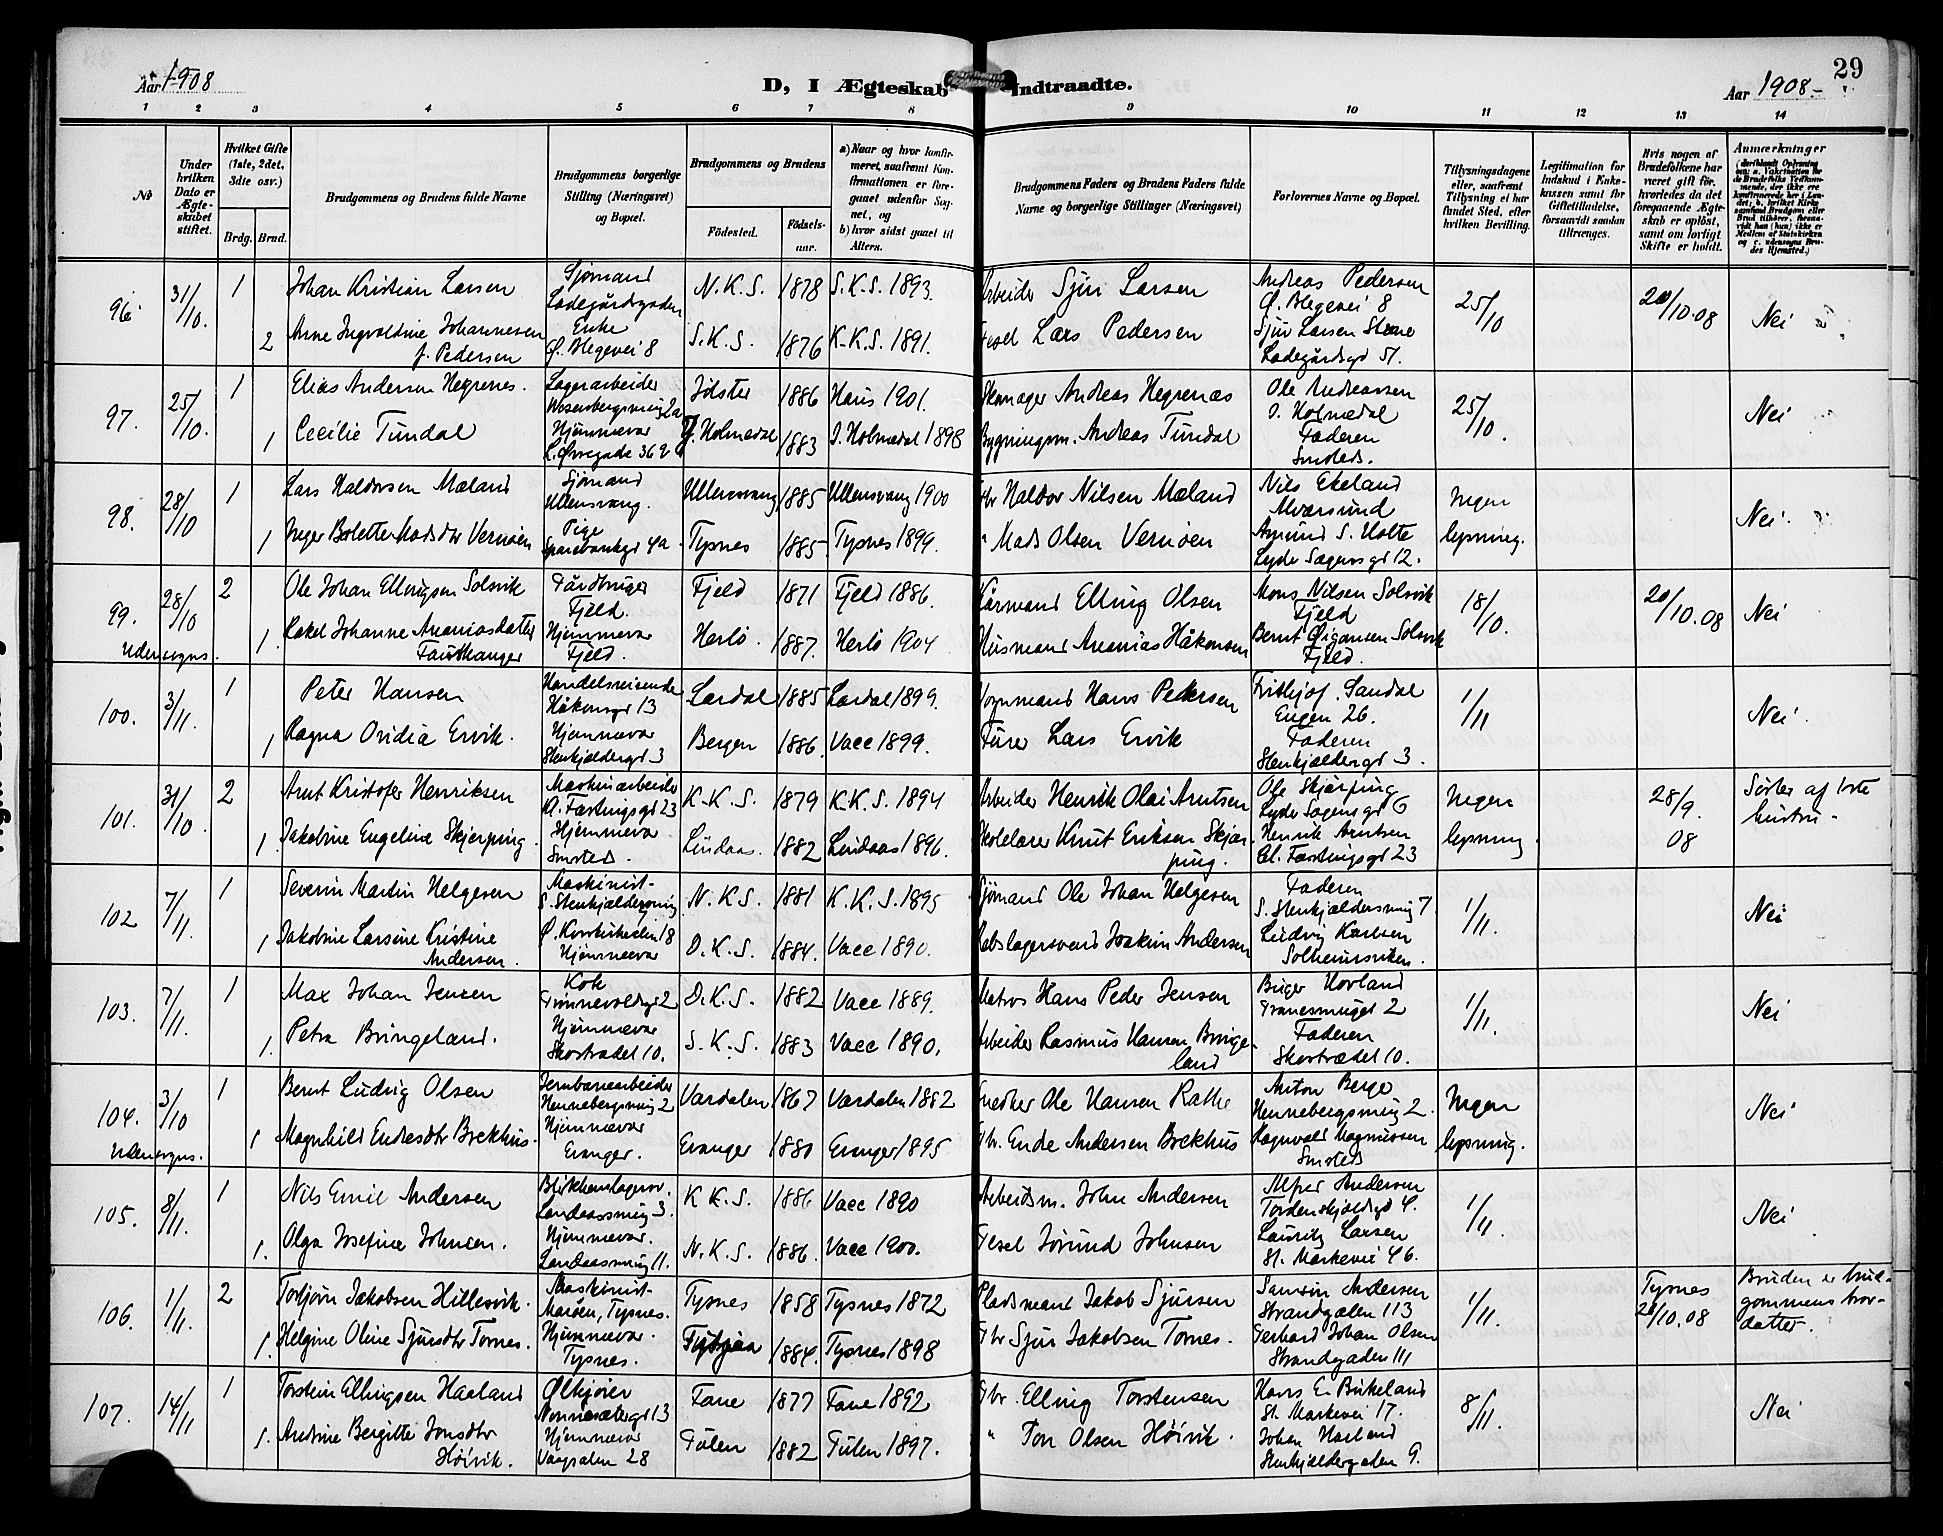 29
Aar 1908
D, I Ægteskab Indtraadte.
Aar 1908.-
1 2 3 4 5 6 7 8 9 10 11 12 13 14
No
Under hvilken Dato er Ægteskabet stiftet.
Hvilket Gifte (1ste, 2det, 3die osv.)
Brdg. Brud.
Brudgommens og Brudens fulde Navne
Brudgommens borgerlige Stilling (Næringsvei) og Bopæl.
Brudgommens og Brudens
Fødested. Fødsels-aar.
a) Naar og hvor konfirmeret, saafremt Konfirmationen er foregaaet udenfor Sognet, og
b) hvor sidst gaaet til Alters.
Brudgommens Faders og Brudens Faders fulde Navne og borgerlige Stillinger (Næringsvei)
Forlovernes Navne og Bopæl.
Tillysningsdagene eller, saafremt Tillysning ei har fundet Sted, efter hvilken Bevilling.
Legitimation for Indskud i Enkekassen samt for Giftetilladelse, forsaavidt saadan tiltrænges.
Hvis nogen af Brudefolkene har været gift før, hvorledes da det foregaaende Ægteskab er opløst, samt om lovligt Skifte er holdt.
Anmærkninger
96. 31/10. 1 Johan Kristian Larsen
Sjømand Ladegårdsgaden
N.K.S. 1878 S.K.S. 1893.
Arbeider Sjur Larsen
Andreas Pedersen Ø. Blegevei 8
25/10
20/10.08
Nei
2 Anne Ingvoldine Johannesen f. Pedersen
Enke Ø. Blegevei 8
S.K.S. 1876 K.K.S. 1891.
Lars Pedersen
Sjur Larsen
Ladegårdsgd 51.
97. 25/10. 1 Elias Andersen Hegrenes.
Lagerarbeider
Jølster 1886 Haus 1901.
Andreas Hegrenas
Ole Andreassen
Y. Holmedal
25/10.
Nei
1 Cecilie Tundal
Hjemmevær L. Øvregade 36
Y. Holmedal 1883 Y. Holmedal 1898
Bygningsm. Andreas Tundal
Faderen
Smsteds.
98. 28/10 1 Lars Haldorsen Mæland
Sjømand Ullensvang.
Ullensvang 1885 Ullensvang 1900
Gbr Haldor Nilsen Mæland
Nils Ekeland
Alværsund
Ingen lysning.
Nei.
1 Inger Bolette Madsdtr Vernøen
Pige Sparebankgd 4a.
Tysnes 1885 Tysnes 1899.
" Mads Olsen Vernøen
Amund S. Holte
Lyder Sagensgd 12.
99. 28/10 2 Ole Johan Ellingsen Solsvik
Gårdbruger Fjeld.
Fjeld 1871 Fjeld 1886.
Kårmand Elling Olsen
Mons Nilsen Solsvik
Fjeld
18/10.
20/10.08
Nei
Udensogns. 1. Rakel Johanne Ananiasdatter Tausthanger
Hjemmevær Fjeld.
Herlø. 1887. Herlø 1904
Husmand Ananias Håkonsen
Bernt Solsvik
Fjeld.
100. 3/11. 1 Peter Hansen
Handelsreisende Håkonsgd 13
Lardal 1885 Lardal 1899.
Vognmand Hans Pedersen
Fritjof Sandal
Engen 26.
1/11
Nei.
1 Ragna Ovidia Ervik.
Hjemmevær Stenkjeldergd 3
Bergen 1886. Vacc 1899.
Fürer Lars Ervik
Faderen
Stenkjeldergd 3.
101. 31/10. 2 Arnt Kristofer Henriksen
Maskinarbeider Kl. Fæstingsgd 23
K.K.S. 1879 K.K.S. 1894
Arbeider Henrik Olai Arntsen
Ole Skjerping
Lyder Sagensgd 6
Ingen lysning.
28/9. 08
Søster af 1ste hustru.-
1. Jakobine Engeline Skjerping.
Hjemmevær Smsteds.
Lindaas. 1882 Lindaas 1896.
Skolelærer Knut Eriksen Skjerping.
Henrik Arntsen
Gl. Fæstingsgd 23
102 7/11. 1 Severin Martin Helgesen
Maskinist- S. Stenkjeldersmug
N.K.S. 1881 K.K.S. 1895
Sjømand Ole Johan Helgesen
Faderen
S. Stenkjeldersmug 7.
1/11.
Nei
1 Jakobine Larsine Kristine Andersen.
18 Hjemmevær
D.K.S. 1884. Vacc 1890.
Rebslagersvend Joakim Andersen
Ludvig Karlsen
Solheimsviken.
103. 7/11. 1 Max Johan Jensen
Kok 2
D.K.S. 1882 Vacc 1889.
Matros Hans Peder Jensen
Birger Hovland
2
1/11.
Nei
1. Petra Bringeland.
Hjemmevær Skostrædet 10.
S.K.S. 1883 Vacc 1890.
Arbeider Rasmus Hansen Bringeland
Faderen
Skostrædet 10.
104. 3/10 1 Bernt Ludvig Olsen
Jernbanearbeider Hennebergsmug 2
Værdalen 1867 Værdalen 1882
Ole Hansen Rathe
Anton Berge
Hennebergsmug 2.
Ingen lysning.
Nei
Udensogns. 1 Magnhild Endresdtr Brekhus.
Hjemmevær Evanger.
Evanger 1880 Evanger 1895
Gbr. Ende Andersen Brekhus
Ragnvald Magnussen
Smsteds
105. 8/11. 1 Nils Emil Andersen
Blikkenslagersv. Landaassmug 3.
K K.S. 1886 Vacc 1890
Arbeidsm. John Andersen
Alfred Andersen
Tordenskjoldsgd 4.
1/11.
Nei
1. Olga Josefine Johnsen.
Hjemmevær. Landaassmug 11.
N.K.S. 1886. Vacc 1900.
Jørund Johnsen
Lauritz Larsen
St. Markevei 46.
106. 1/11. 2 Torbjørn Jakobsen Hillesvik.
Maskinist- Marøen, Tysnes.
Tysnes 1858 Tysnes 1872
Pladsmand Jakob Sjursen
Samson Andersen
Strandgaden 113
1/11.
Tysnes 28/10.08
Bruden er brudgommens brordatter.
1. Helgine Oline Sjursdtr Tornes.
Hjemmevær. Tysnes.
1884. Tysnes 1898
Gbr Sjur Jakobsen Tornes.
Gerhard Johan Olsen
Strandgaden 111
107. 14/11 1 Torstein Ellingsen Haaland
Ølkjører Nonnesætergd 13
Fane 1877 Fane 1892
Gbr. Elling Torstensen
Hans E. Birkeland
St. Markevei 17.
8/11.
Nei
1. Andrine Bergitte Jonsdtr Høivik.
Hjemmevær Vaagsalm 28
Gulen 1882 Gulen 1897.
" Jon Olsen Høivik.
Johan Haaland
Stenkjeldergaden 9.